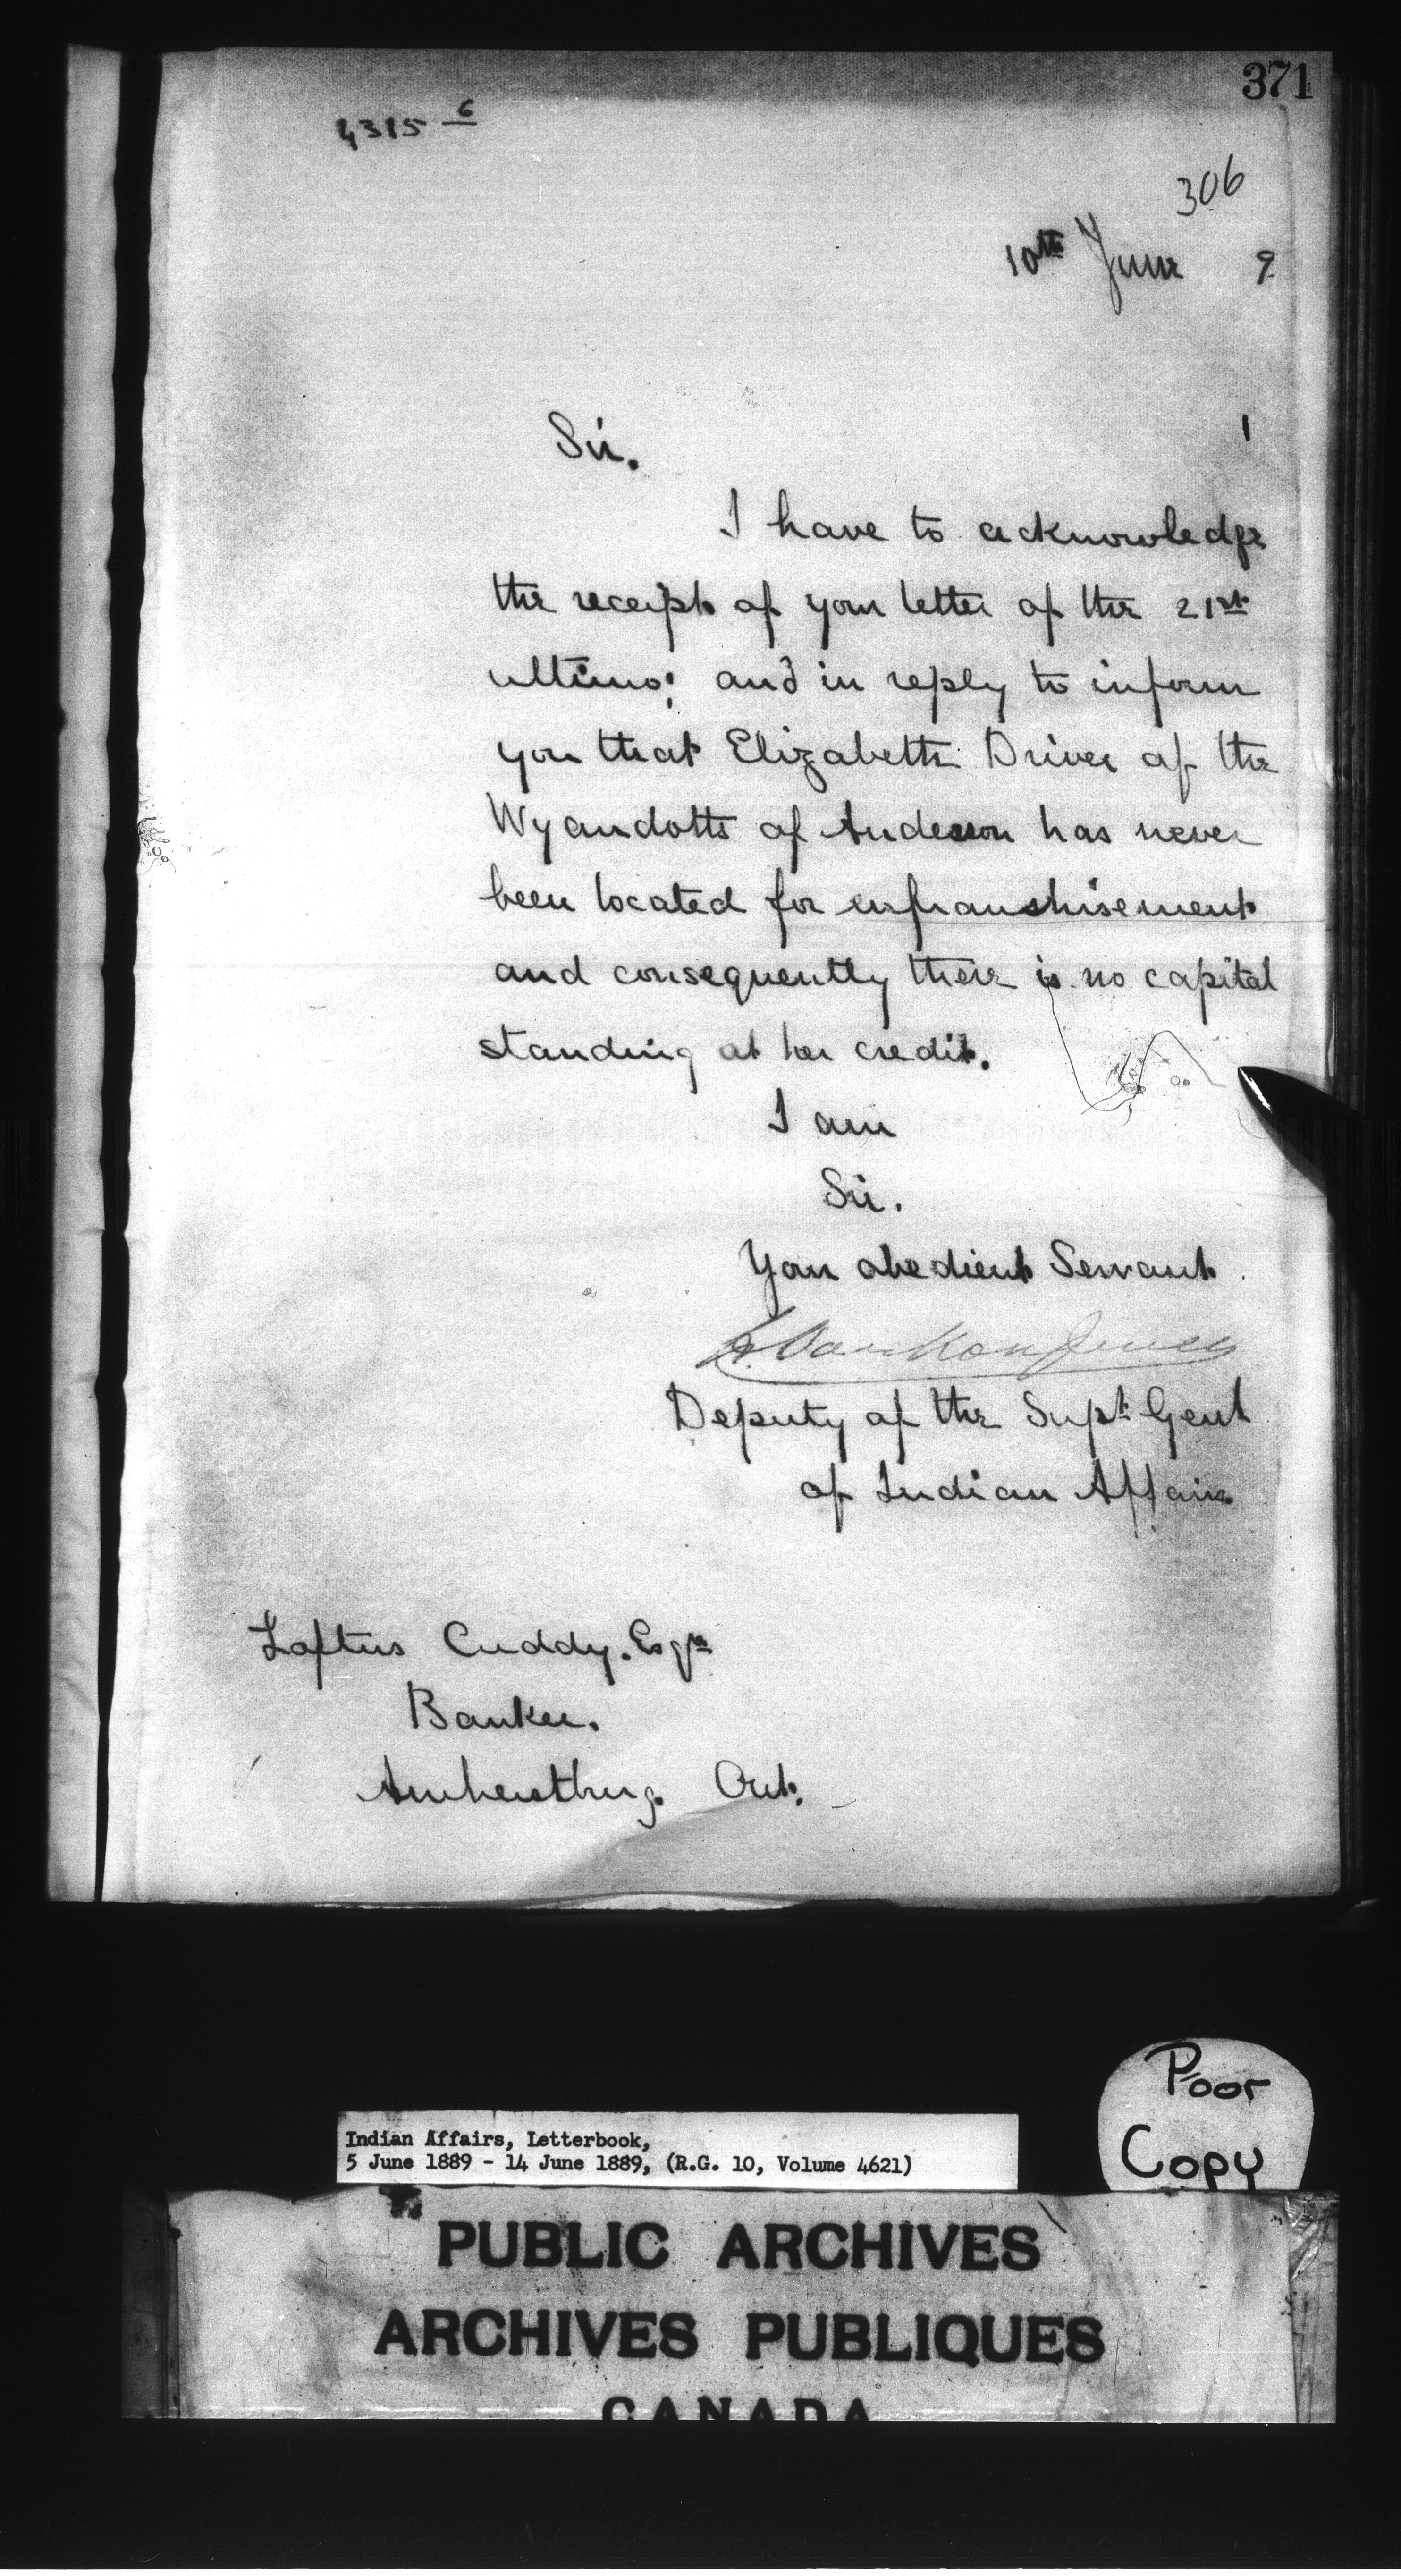 371
4315 6
306
10th June 9
Sir.
I have to acknowledge
the receipt of your letter of the 21st
ultimo; and in reply to inform
you that Elizabeth Driver of the
Wyandotts of Anderson has never
been located for enfranshisement
and consequently there is no capital
standing at her credit.
I am
Sir.
Your obedient Servant
L. VanKoughnet
Deputy of the Supt Genl
of Indian Affairs
Loftus Cuddy. Esqre
Banker.
Amherstburg. Ont.
Poor
Copy
Indian Affairs, Letterbook,
5 June 1889 - 14 June 1889, (R.G. 10, Volume 4621)
PUBLIC ARCHIVES
ARCHIVES PUBLIQUES
CANADA